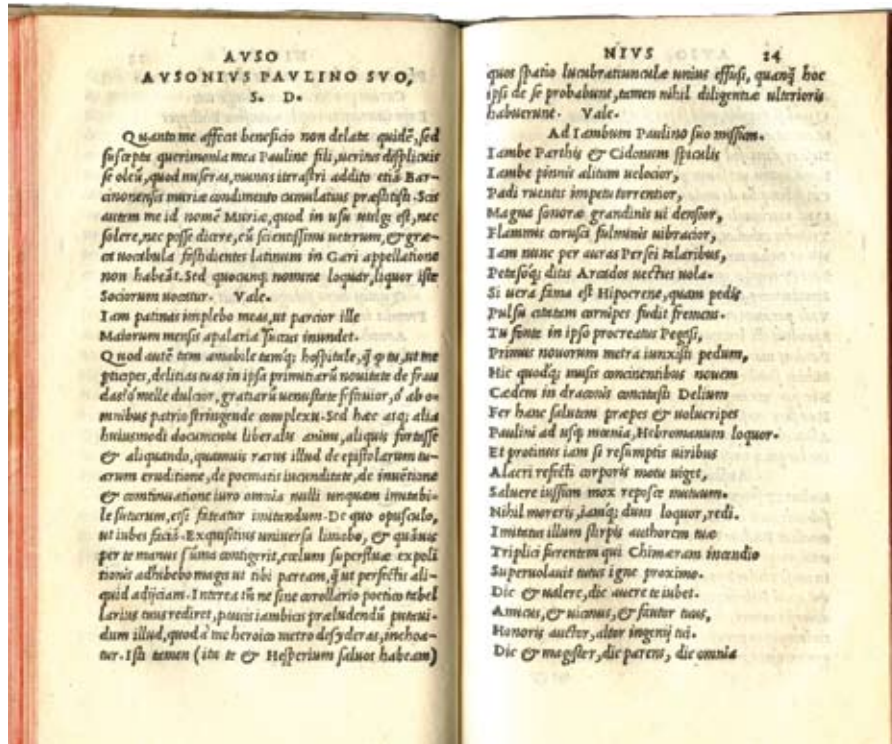 AVSO
AVSONIVS PAVLINO SVO,
S. D.
Quanto me affecit beneficio non delata quidē, sed
suscepta querimonia mea Pauline fili, ueritus displicuis
se oleū, quod miseras, munus iterasti addito etiā Bar-
cinonensis muriæ condimento cumulatius præstitisti. Scis
autem me id nomē Muriæ, quod in usu uulgi est, nec
solere, nec posse dicere, cū scientissimi ueterum, & græ-
ca uocabula fastidientes latinum in Gari appellatione
non habeāt. Sed quocunq; nomine loquar, liquor iste
Sociorum uocatur. Vale.
Iam patinas implebo meas, ut parcior ille
Maiorum mensis apalaria succus inundet.
Quod autē tam amabile tamq; hospitale, q̄ tu, ut me
pticipes, delitias tuas in ipsa primitiarū nouitate de frau
das! ó melle dulcior, gratiarū uenustate festiuior, ó ab o-
mnibus patrio stringende complexu. Sed hæc atq; alia
huiusmodi documenta liberalis animi, aliquis fortasse
& aliquando, quamuis rarus illud de epistolarum tu-
arum eruditione, de poematis iucunditate, de inuētione
& continuatione iuro omnia nulli unquam imitabi-
le futurum, etsi fateatur imitandum. De quo opusculo,
ut iubes faciā. Exquisitius uniuersa limabo, & quāuis
per te manus sūma contigerit, cælum superfluæ expoli
tionis adhibebo magis ut tibi paream, q̄ ut perfectis ali-
quid adijciam. Interea tn̄ ne sine corollario poetico tabel
larius tuus rediret, paucis iambicis præludendū putaui.
dum illud, quod à me heroico metro desyderas, inchoa-
tur. Isti tamen (ita te & Hesperium saluos habeam)
NIVS 14
quos spatio lucubratiunculæ unius effusi, quanq̄ hoc
ipsi de se probabunt, tamen nihil diligentiæ ulterioris
habuerunt. Vale.
Ad Iambum Paulino suo missum.
Iambe Parthis & Cidonum spiculis
Iambe pinnis alitum uelocior,
Padi ruentis impetu torrentior,
Magna sonoræ grandinis ui densior,
Flammis corusci fulminis uibracior,
Iam nunc per auras Persei talaribus,
Petasoq; ditis Arcados uectus uola.
Si uera fama est Hipocrene, quam pedis
Pulsu citatem cornipes fudit fremens.
Tu fonte in ipso procreatus Pegasi,
Primus nouorum metra iunxisti pedum,
Hic quodq; musis concinentibus nouem
Cædem in draconis concitasti Delium
Fer hanc salutem præpes & uolucripes
Paulini ad usq; mœnia, Hebromanum loquor.
Et protinus iam si resumptis uiribus
Alacri refecti corporis motu uiget,
Saluere iussum mox reposce mutuum.
Nihil moreris, iamq; dum loquor, redi.
Imitatus illum stirpis authorem tuæ
Triplici furentem qui Chimæram incendio
Superuolauit tutus igne proximo.
Dic & ualere, dic auere te iubet.
Amicus, & uicinus, & fautor tuus,
Honoris auctor, altor ingenij tui.
Dic & magister, dic parens, dic omnia